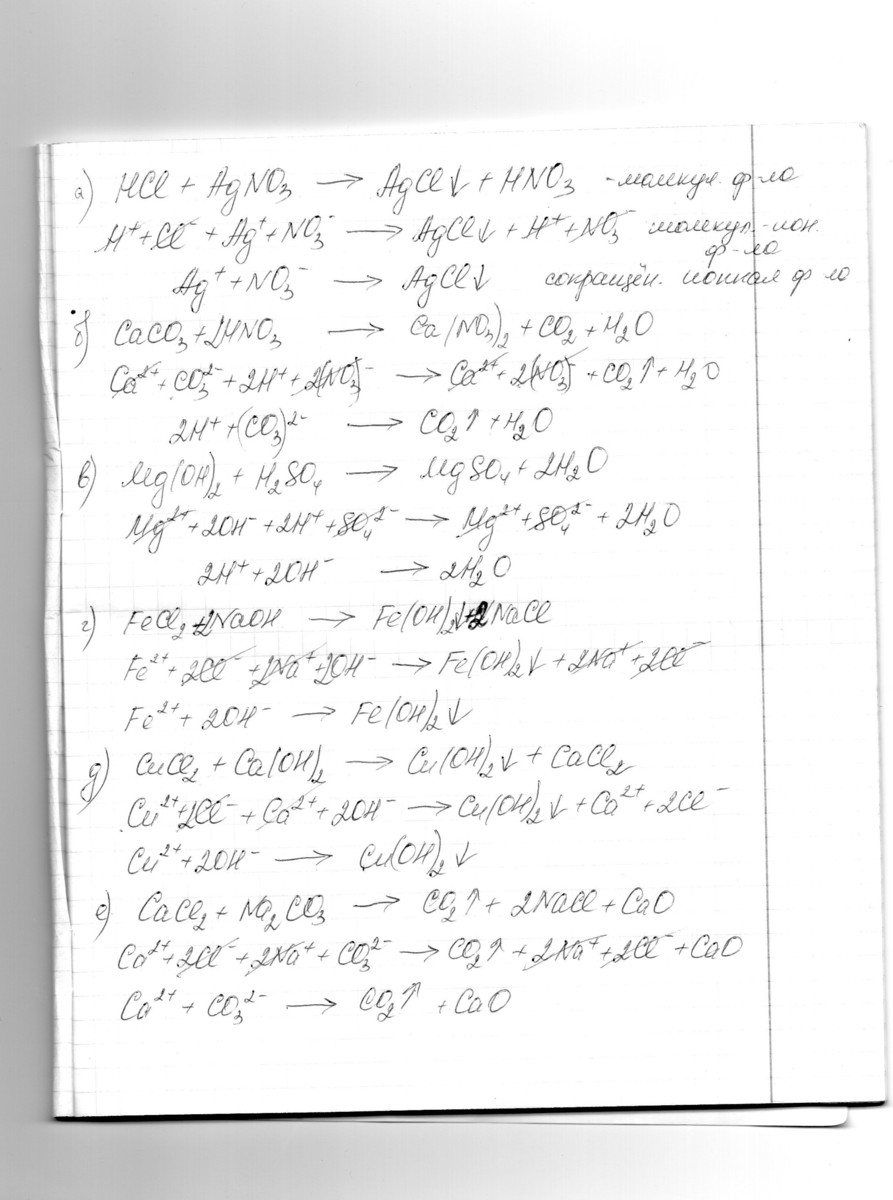 а) HCl + AgNO₃ → AgCl↓ + HNO₃ - молекул. ф-ла
H⁺ + Cl⁻ + Ag⁺ + NO₃⁻ → AgCl↓ + H⁺ + NO₃⁻ молекул.-ион. ф-ла
Ag⁺ + NO₃⁻ → AgCl↓ сокращён. ионная ф-ла
б) CaCO₃ + 2HNO₃ → Ca(NO₃)₂ + CO₂ + H₂O
Ca²⁺ + CO₃²⁻ + 2H⁺ + 2(NO₃)⁻ → Ca²⁺ + 2(NO₃)⁻ + CO₂↑ + H₂O
2H⁺ + (CO₃)²⁻ → CO₂↑ + H₂O
в) Mg(OH)₂ + H₂SO₄ → MgSO₄ + 2H₂O
Mg²⁺ + 2OH⁻ + 2H⁺ + SO₄²⁻ → Mg²⁺ + SO₄²⁻ + 2H₂O
2H⁺ + 2OH⁻ → 2H₂O
г) FeCl₂ + 2NaOH → Fe(OH)₂↓ + 2NaCl
Fe²⁺ + 2Cl⁻ + 2Na⁺ + 2OH⁻ → Fe(OH)₂↓ + 2Na⁺ + 2Cl⁻
Fe²⁺ + 2OH⁻ → Fe(OH)₂↓
д) CuCl₂ + Ca(OH)₂ → Cu(OH)₂↓ + CaCl₂
Cu²⁺ + 2Cl⁻ + Ca²⁺ + 2OH⁻ → Cu(OH)₂↓ + Ca²⁺ + 2Cl⁻
Cu²⁺ + 2OH⁻ → Cu(OH)₂↓
е) CaCl₂ + Na₂CO₃ → CO₂↑ + 2NaCl + CaO
Ca²⁺ + 2Cl⁻ + 2Na⁺ + CO₃²⁻ → CO₂↑ + 2Na⁺ + 2Cl⁻ + CaO
Ca²⁺ + CO₃²⁻ → CO₂↑ + CaO